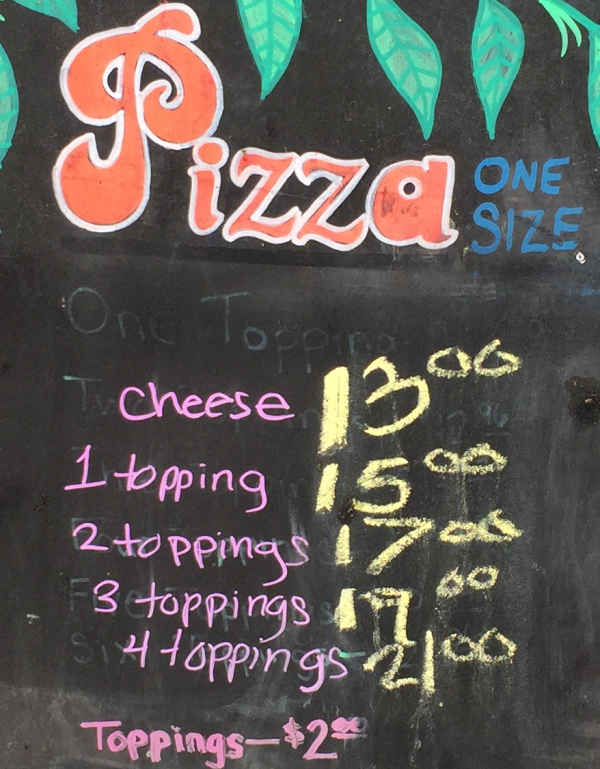 Pizza ONE
SIZE
One Topping
cheese 13 00
1 topping 15 00
2 toppings 17 00
3 toppings 19 00
4 toppings 21 00
Toppings-$2 00